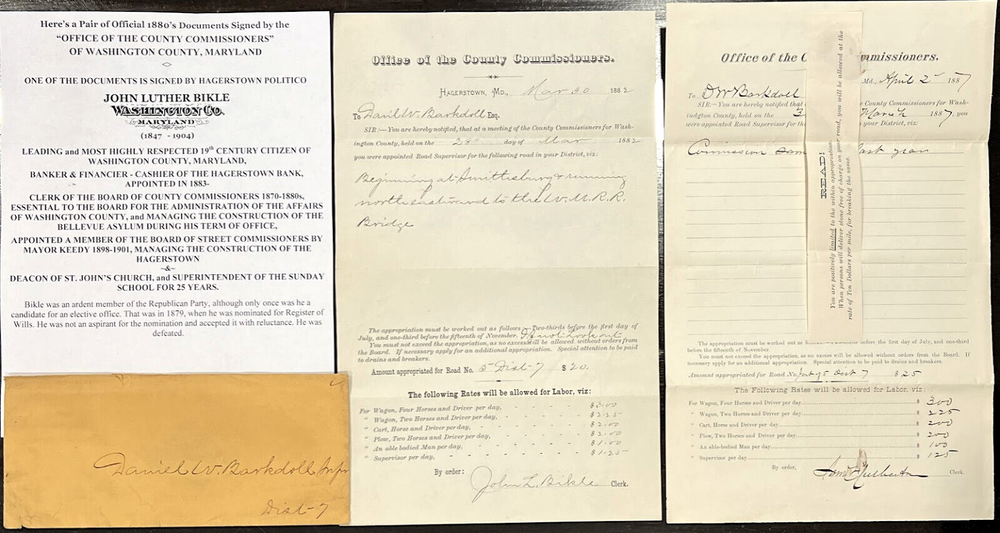 Here's a Pair of Official 1880's Documents Signed by the
"OFFICE OF THE COUNTY COMMISSIONERS"
OF WASHINGTON COUNTY, MARYLAND
ONE OF THE DOCUMENTS IS SIGNED BY HAGERSTOWN POLITICO
JOHN LUTHER BIKLE
WASHINGTON CO.
MARYLAND
(1847 - 1904)
LEADING and MOST HIGHLY RESPECTED 19th CENTURY CITIZEN OF
WASHINGTON COUNTY, MARYLAND,
BANKER & FINANCIER - CASHIER OF THE HAGERSTOWN BANK,
APPOINTED IN 1883-
CLERK OF THE BOARD OF COUNTY COMMISSIONERS 1870-1880s,
ESSENTIAL TO THE BOARD FOR THE ADMINISTRATION OF THE AFFAIRS
OF WASHINGTON COUNTY, and MANAGING THE CONSTRUCTION OF THE
BELLEVUE ASYLUM DURING HIS TERM OF OFFICE,
APPOINTED A MEMBER OF THE BOARD OF STREET COMMISSIONERS BY
MAYOR KEEDY 1898-1901, MANAGING THE CONSTRUCTION OF THE
HAGERSTOWN
-&-
DEACON OF ST. JOHN'S CHURCH, and SUPERINTENDENT OF THE SUNDAY
SCHOOL FOR 25 YEARS.
Bikle was an ardent member of the Republican Party, although only once was he a
candidate for an elective office. That was in 1879, when he was nominated for Register of
Wills. He was not an aspirant for the nomination and accepted it with reluctance. He was
defeated.
Daniel W Barkdoll
Dist-7
Office of the County Commissioners.
HAGERSTOWN, MD., Mar 30 1882
To Danl W. Barkdoll Esq.
SIR:—You are hereby notified, that at a meeting of the County Commissioners for Wash-
ington County, held on the 28th day of Mar 1882
you were appointed Road Supervisor for the following road in your District, viz:
Beginning at Smithsburg & running
north eastward to the W. M. R. R.
Bridge
The appropriation must be worked out as follows: Two-thirds before the first day of
July, and one-third before the fifteenth of November.
You must not exceed the appropriation, as no excess will be allowed without orders from
the Board. If necessary apply for an additional appropriation. Special attention to be paid
to drains and breakers.
Amount appropriated for Road No. 5 Dist-7 $20.
The following Rates will be allowed for Labor, viz:
For Wagon, Four Horses and Driver per day, - - - $3.00
" Wagon, Two Horses and Driver per day, - - - $2.25
" Cart, Horse and Driver per day, - - - $2.00
" Plow, Two Horses and Driver per day, - - - $2.00
" An able bodied Man per day, - - - $1.00
" Supervisor per day, - - - $1.25
By order: John L. Bikle Clerk.
Office of the C mmissioners.
Md., April 2 1887
To D W Barkdoll
SIR:—You are hereby notified that County Commissioners for Wash-
ington County, held on the 3 March 1887, you
were appointed Road Supervisor for the in your District, viz:
last year
READ!
You are positively limited to the within appropriation.
When persons will deliver stone free of charge on your road, you will be allowed at the
rate of Ten Dollars per mile, for breaking the same.
The appropriation must be worked out as before the first day of July, and one-third
before the fifteenth of November.
You must not exceed the appropriation, as no excess will be allowed without orders from the Board. If
necessary apply for an additional appropriation. Special attention to be paid to drains and breakers.
Amount appropriated for Road No. 5 Dist 7 $25
The Following Rates will be allowed for Labor, viz:
For Wagon, Four Horses and Driver per day $ 300
" Wagon, Two Horses and Driver per day $ 225
" Cart, Horse and Driver per day $ 200
" Plow, Two Horses and Driver per day $ 200
" An able-bodied Man per day $ 100
" Supervisor per day $ 125
By order, Clerk.